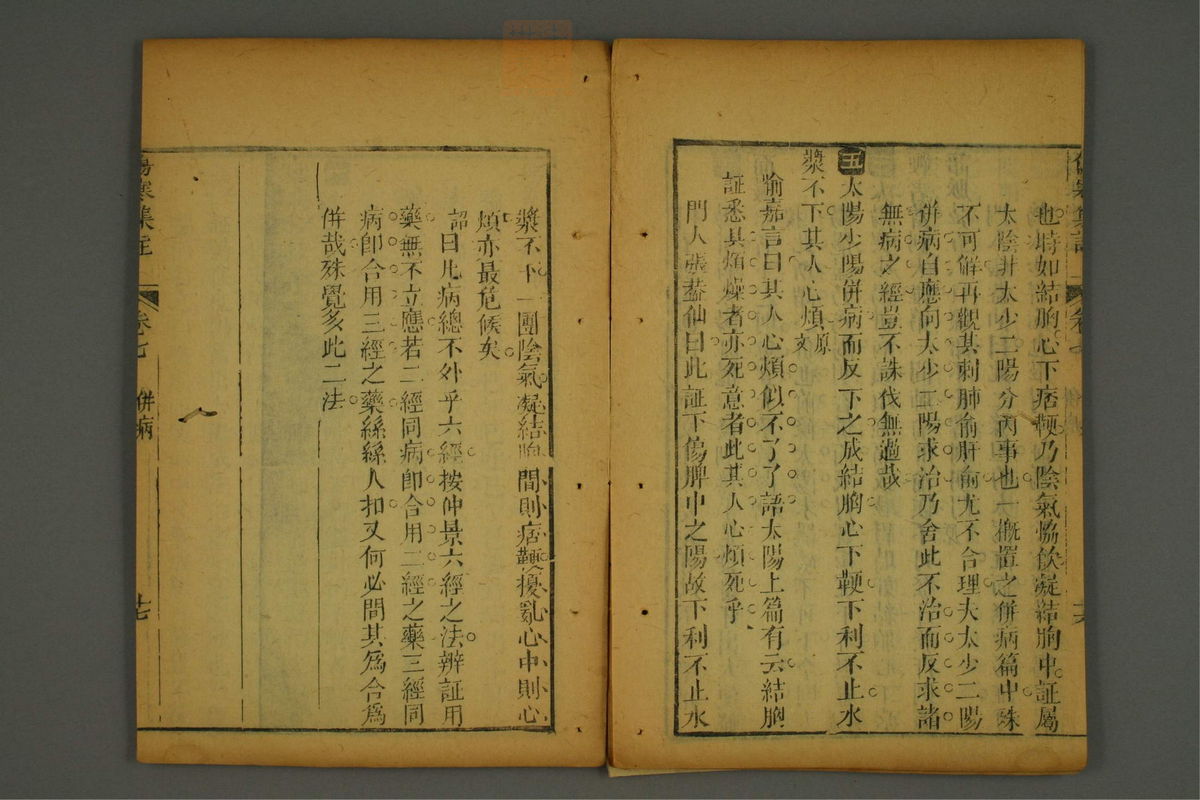 也時如結胸心下痞鞕乃陰氣協飲凝結胸中証屬
太陰非太少二陽分內事也一概置之併病篇中殊
不可解再觀其刺肺俞肝俞尤不合理夫太少二陽
併病自應向太少二陽求治乃舍此不治而反求諸
無病之經豈不誅伐無過哉
五太陽少陽併病而反下之成結胸心下鞕下利不止水
漿不下其人心煩原文
喻嘉言曰其人心煩似不了了語太陽上篇有云結胸
証悉具煩燥者亦死意者此其人心煩死乎
門人張蓋仙曰此証下傷脾中之陽故下利不止水
傷寒集註
卷七
併病
十七
漿不下一團陰氣凝結胸間則痞鞕擾亂心中則心
煩亦最危候矣
詔曰凡病總不外乎六經按仲景六經之法辨証用
藥無不立應若二經同病卽合用二經之藥三經同
病卽合用三經之藥絲絲人扣又何必問其為合為
併哉殊覺多此二法